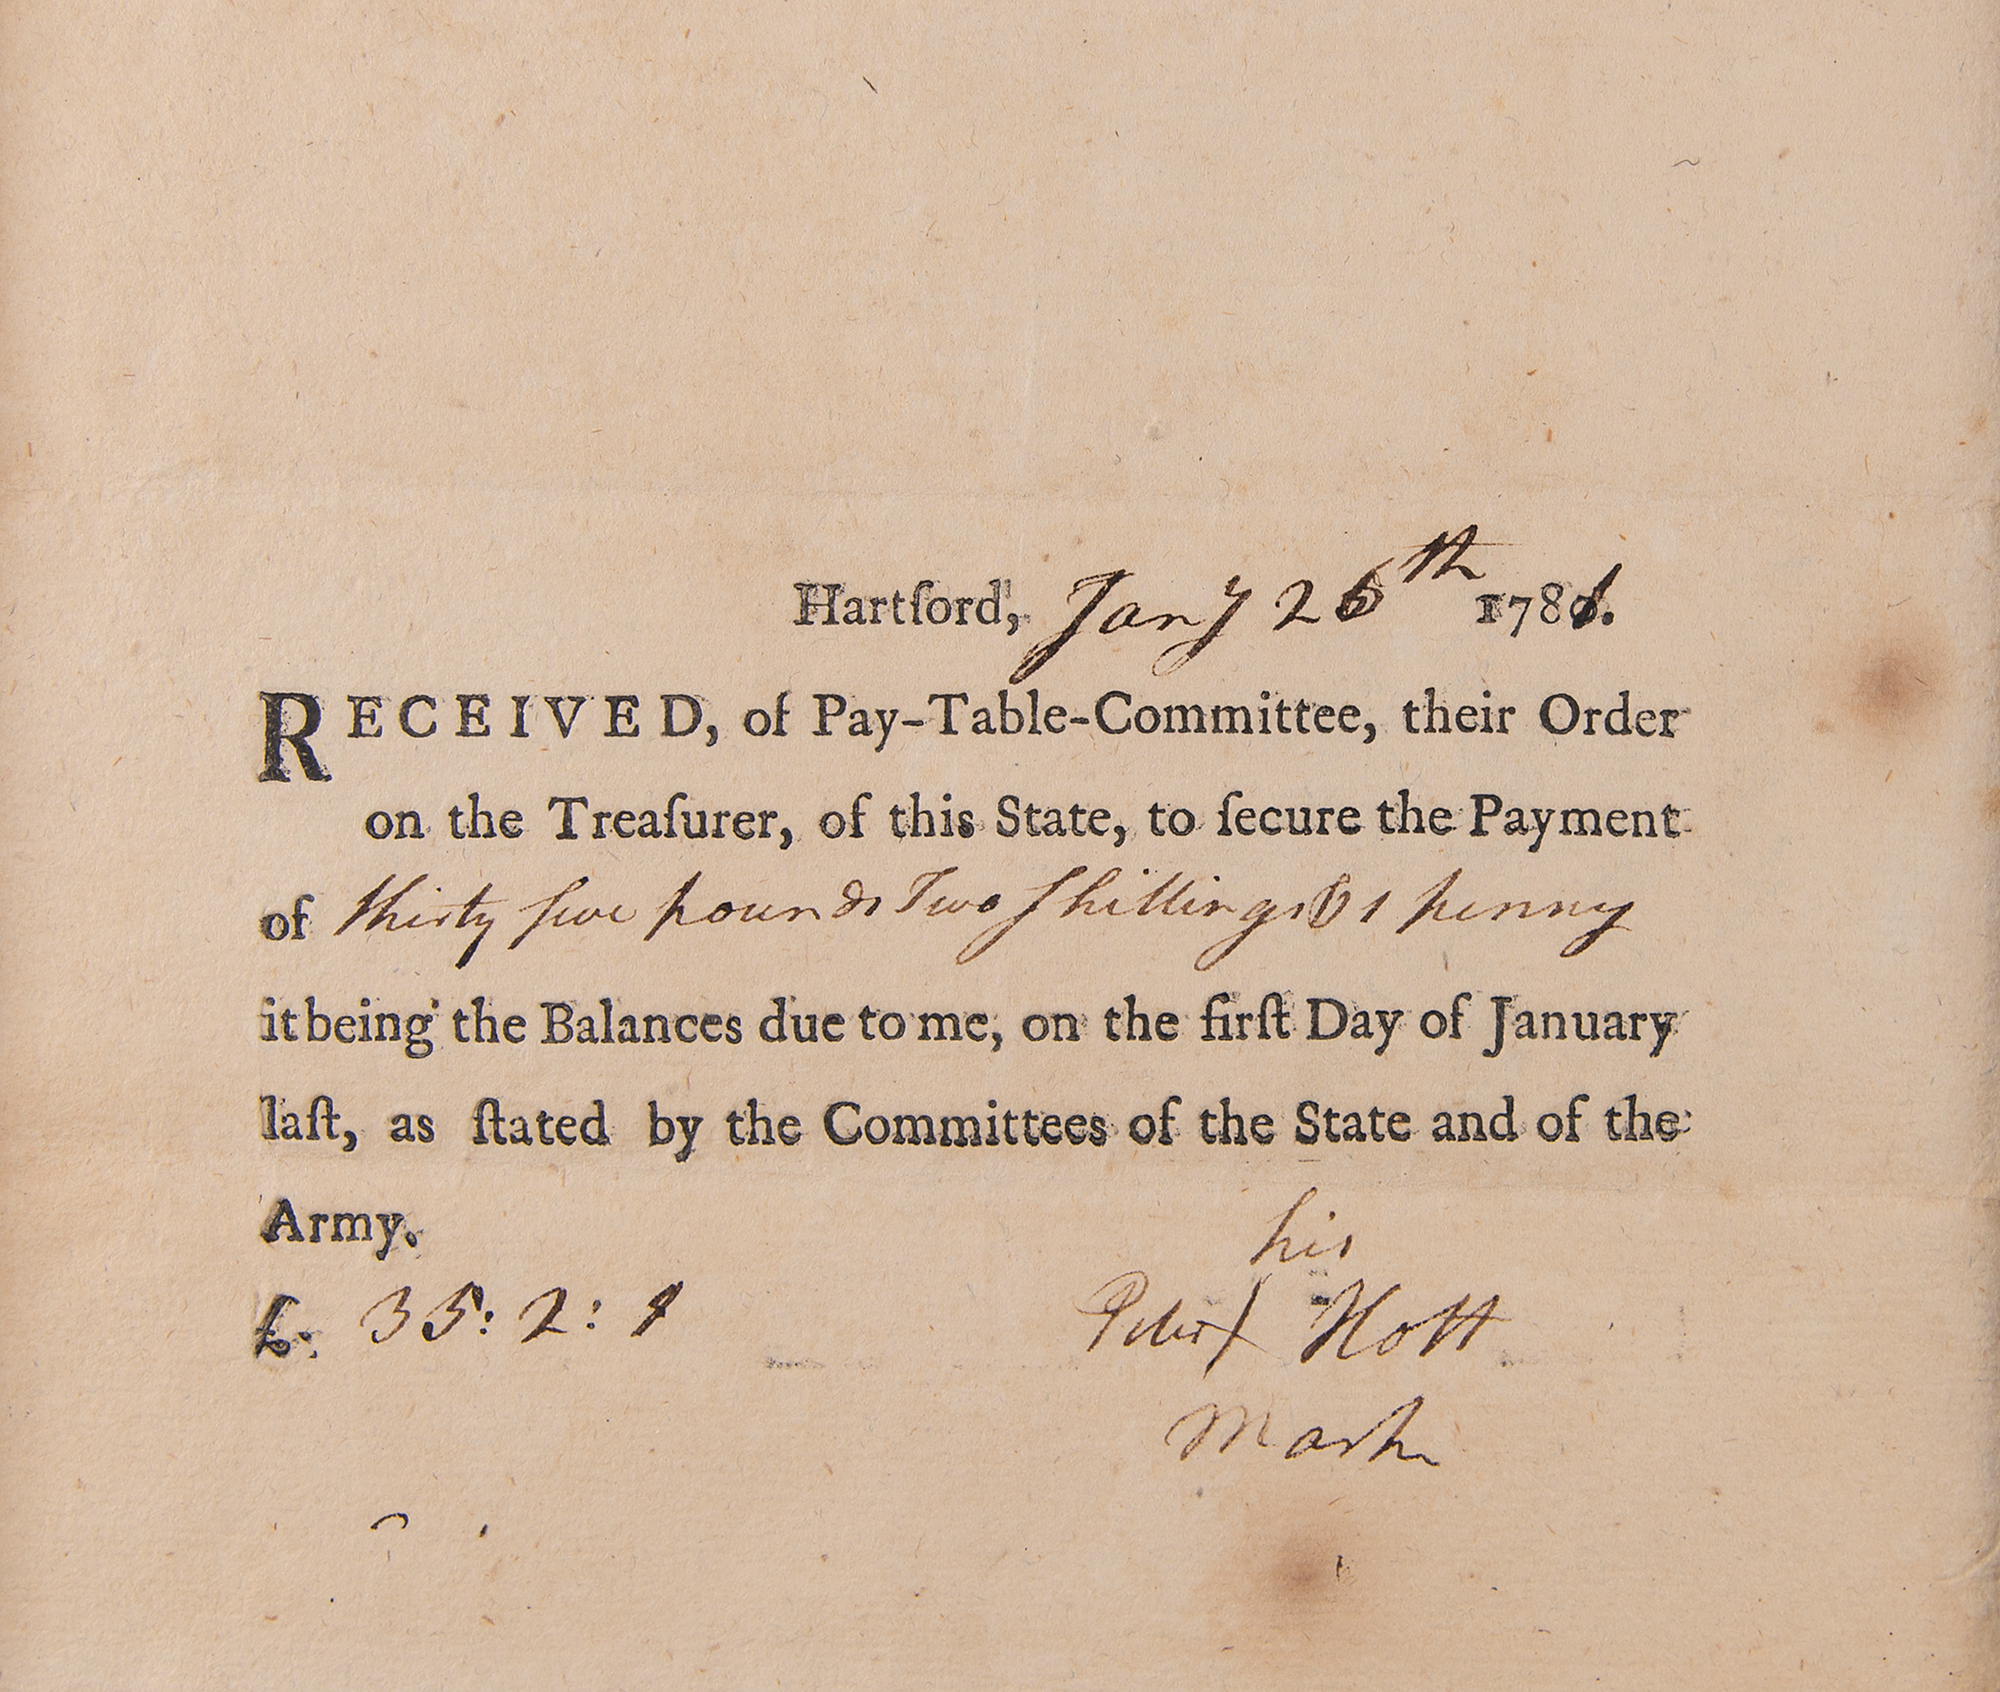 Hartford, Jany 26th 1781.
RECEIVED, of Pay-Table-Committee, their Order
on the Treaſurer, of this State, to ſecure the Payment
of thirty five pounds Two Shillings & 1 penny
it being the Balances due to me, on the firſt Day of January
laſt, as ſtated by the Committees of the State and of the
Army.
his
£. 35: 2: 1 Peter X Hott
Mark